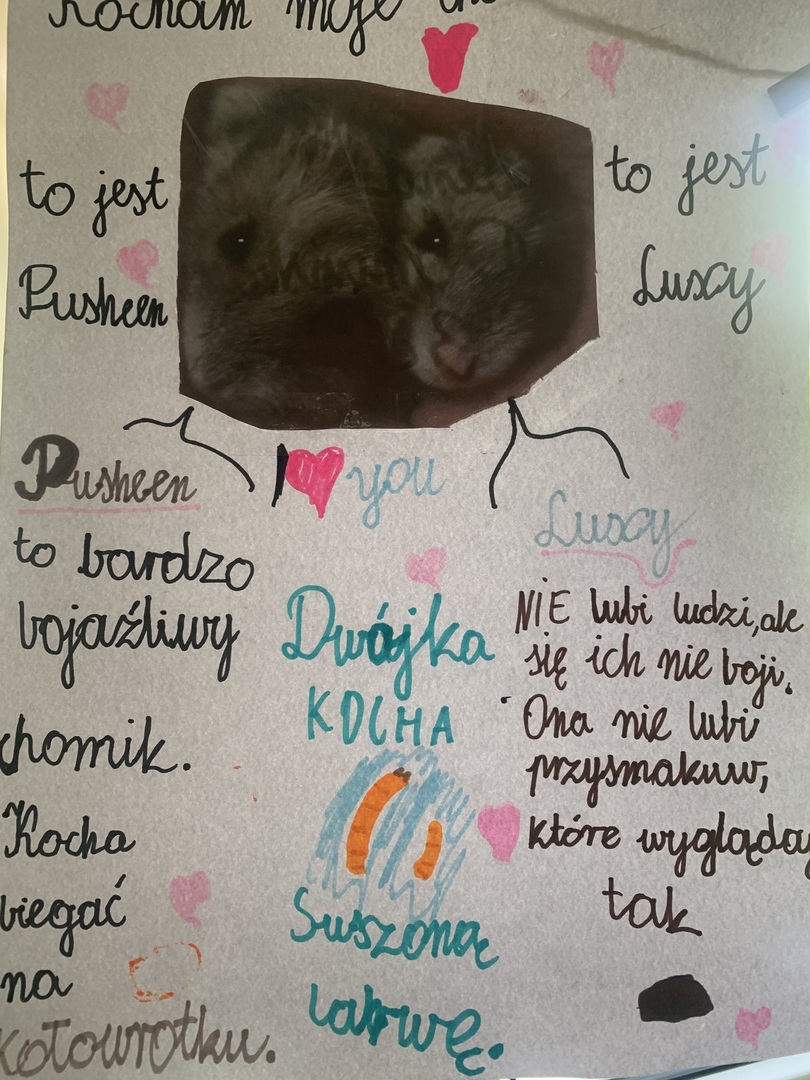 Kocham moje
to jest
Pusheen
to jest
Luscy
I you
Pusheen
to bardzo
bojaźliwy
chomik.
Kocha
biegać
na
kołowrotku.
Dwójka
KOCHA
Suszoną
larwę.
Luscy
NIE lubi ludzi, ale
się ich nie boji.
Ona nie lubi
przysmakuw,
które wyglądają
tak